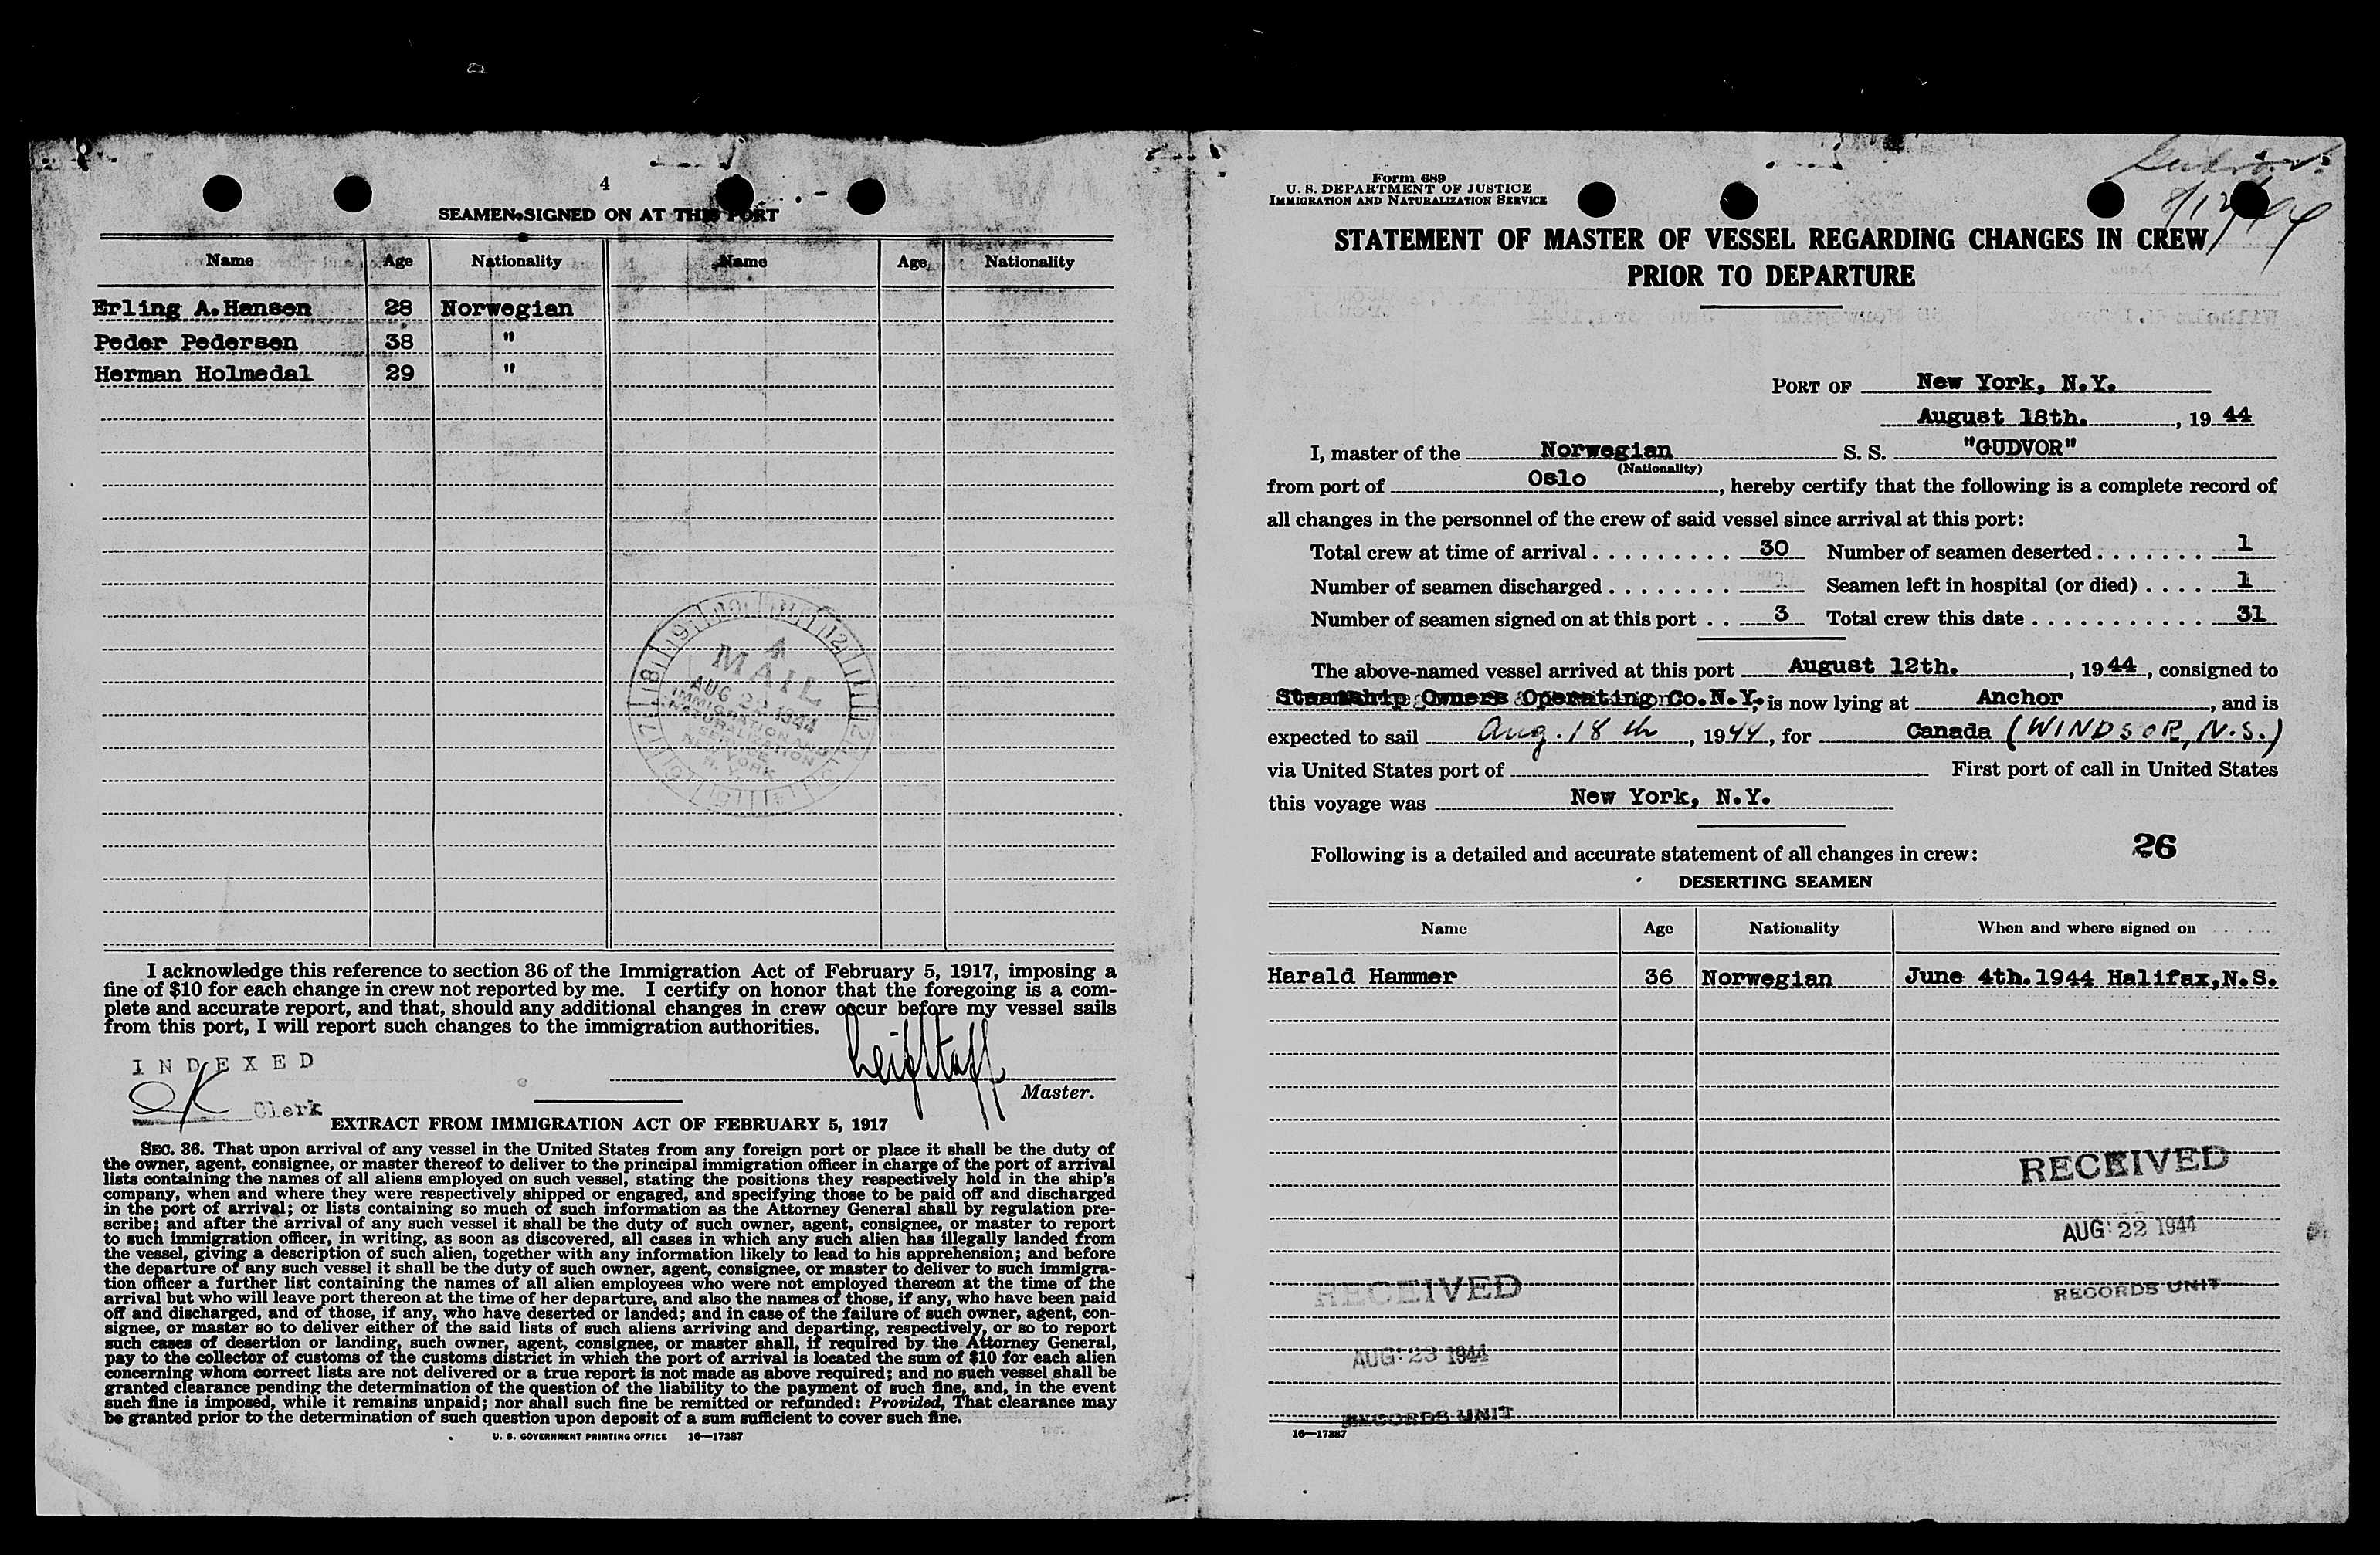 4
SEAMEN SIGNED ON AT THIS PORT
Name Age Nationality Name Age Nationality
Erling A.Hansen 28 Norwegian
Peder Pedersen 38 "
Herman Holmedal 29 "
A
MAIL
AUG 22 1944
IMMIGRATION AND
NATURALIZATION
SERVICE
NEW YORK
N. Y.
I acknowledge this reference to section 36 of the Immigration Act of February 5, 1917, imposing a
fine of $10 for each change in crew not reported by me. I certify on honor that the foregoing is a com-
plete and accurate report, and that, should any additional changes in crew occur before my vessel sails
from this port, I will report such changes to the immigration authorities.
INDEXED
Leif Staff
Master.
Clerk
EXTRACT FROM IMMIGRATION ACT OF FEBRUARY 5, 1917
SEC. 36. That upon arrival of any vessel in the United States from any foreign port or place it shall be the duty of
the owner, agent, consignee, or master thereof to deliver to the principal immigration officer in charge of the port of arrival
lists containing the names of all aliens employed on such vessel, stating the positions they respectively hold in the ship's
company, when and where they were respectively shipped or engaged, and specifying those to be paid off and discharged
in the port of arrival; or lists containing so much of such information as the Attorney General shall by regulation pre-
scribe; and after the arrival of any such vessel it shall be the duty of such owner, agent, consignee, or master to report
to such immigration officer, in writing, as soon as discovered, all cases in which any such alien has illegally landed from
the vessel, giving a description of such alien, together with any information likely to lead to his apprehension; and before
the departure of any such vessel it shall be the duty of such owner, agent, consignee, or master to deliver to such immigra-
tion officer a further list containing the names of all alien employees who were not employed thereon at the time of the
arrival but who will leave port thereon at the time of her departure, and also the names of those, if any, who have been paid
off and discharged, and of those, if any, who have deserted or landed; and in case of the failure of such owner, agent, con-
signee, or master so to deliver either of the said lists of such aliens arriving and departing, respectively, or so to report
such cases of desertion or landing, such owner, agent, consignee, or master shall, if required by the Attorney General,
pay to the collector of customs of the customs district in which the port of arrival is located the sum of $10 for each alien
concerning whom correct lists are not delivered or a true report is not made as above required; and no such vessel shall be
granted clearance pending the determination of the question of the liability to the payment of such fine, and, in the event
such fine is imposed, while it remains unpaid; nor shall such fine be remitted or refunded: Provided, That clearance may
be granted prior to the determination of such question upon deposit of a sum sufficient to cover such fine.
U. S. GOVERNMENT PRINTING OFFICE 16—17387
Form 689
U. S. DEPARTMENT OF JUSTICE
IMMIGRATION AND NATURALIZATION SERVICE
Gudvor
8/12/44
STATEMENT OF MASTER OF VESSEL REGARDING CHANGES IN CREW
PRIOR TO DEPARTURE
PORT OF New York, N.Y.
August 18th. , 19 44
I, master of the Norwegian S. S. "GUDVOR"
(Nationality)
from port of Oslo , hereby certify that the following is a complete record of
all changes in the personnel of the crew of said vessel since arrival at this port:
Total crew at time of arrival . . . . . . . . . 30 Number of seamen deserted . . . . . . . 1
Number of seamen discharged . . . . . . . . Seamen left in hospital (or died) . . . . 1
Number of seamen signed on at this port . . 3 Total crew this date . . . . . . . . . . . 31
The above-named vessel arrived at this port August 12th. , 19 44 , consigned to
Steamship Owners Operating Co.N.Y., is now lying at Anchor , and is
expected to sail Aug. 18 th , 1944 , for Canada (WINDSOR, N.S.)
via United States port of First port of call in United States
this voyage was New York, N.Y.
26
Following is a detailed and accurate statement of all changes in crew:
DESERTING SEAMEN
Name Age Nationality When and where signed on
Harald Hammer 36 Norwegian June 4th.1944 Halifax,N.S.
RECEIVED
AUG 22 1944
RECORDS UNIT
RECEIVED
AUG 23 1944
RECORDS UNIT
16—17387